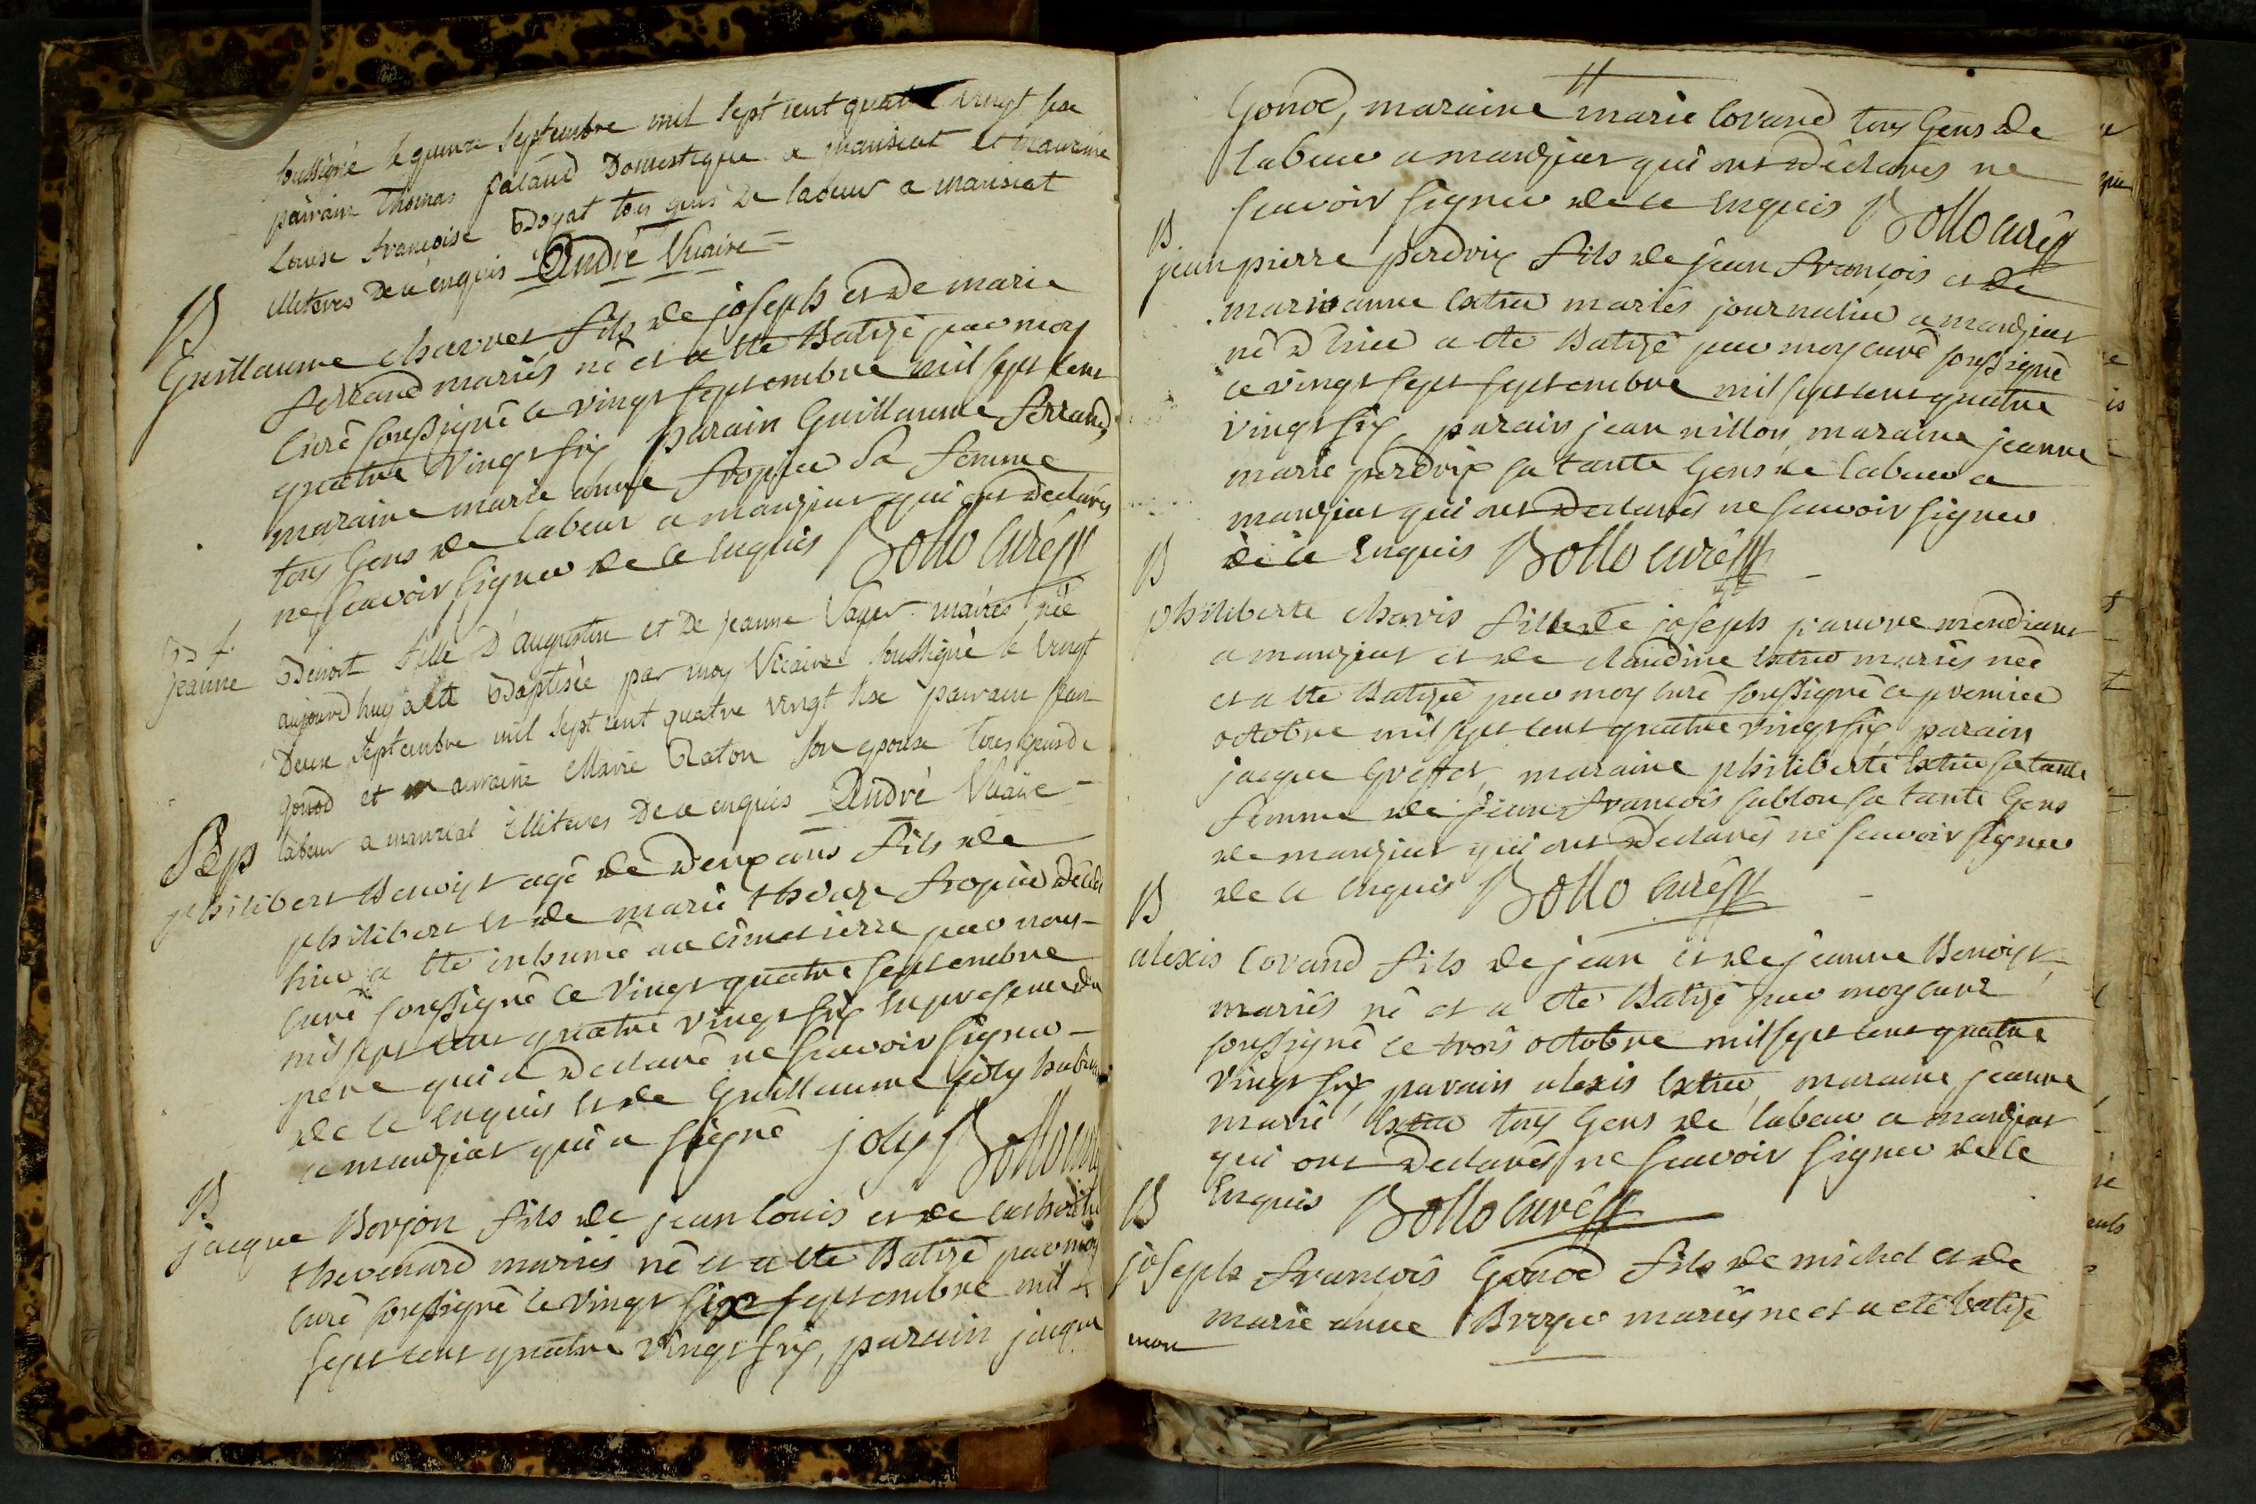 soussigné le quinze Septembre mil Sept cent quatre vingt six
parrain thomas Paland Domestique a manziat et marraine
Louise françoise Boyat tous gens de labeur a manziat
illiteres de ce enquis André Vicaire
B
Guillaume charvet fils de joseph et de marie
ferrand mariés né et a été Batizé par moy
Curé soussigné le vingt septembre mil sept cent
quatre vingt six parain Guillaume ferrand,
maraine marie anne fropier sa femme
tous Gens de labeur a manziat qui ont declarés
ne scavoir signer de ce enquis Bollo curé
B f.
jeanne Benoit fille D'augustin et de jeanne mariés née
aujourd'huy a été Baptisée par moy Vicaire soussigné le vingt
Deux septembre mil sept cent quatre vingt six parrain jean
gonod et marraine Marie Raton son epouse tous gens de
labeur a manziat illiteres de ce enquis André Vicaire
Sep
philibert Benoist agé de deux ans fils de
philibert et de marie thereze fropier décédé
hier a été inhumé au cimetierre par nous
curé soussigné le vingt quatre septembre
mil sept cent quatre vingt six en presence du
pere qui a declaré ne scavoir signer
de ce enquis et de Guillaume joly
a manziat qui a signé joly Bollo curé
B
jacque Borjon fils de jean louis et de catherine
thevenard mariés né et a été Batizé par moy
curé soussigné le vingt six septembre mil
sept cent quatre vingt six, parain jacque
Gonod, maraine marie Corand tous Gens de
labeur a manziat qui ont declarés ne
scavoir signer de ce enquis Bollo curé
B
jean pierre perdrix fils de jean françois et de
marianne Catru mariés journalier a manziat
né d'hier a été Batizé par moy curé soussigné
le vingt sept septembre mil sept cent quatre
vingt six parain jean nillon maraine jeanne
marie perdrix sa tante Gens de labeur a
manziat qui ont declarés ne scavoir signer
de ce enquis Bollo curé
B
philiberte chavis fille de joseph pauvre mendiant
a manziat et de claudine Catru mariés née
et a été Batizée par moy curé soussigné le premier
octobre mil sept cent quatre vingt six parain
jacque Greffet, maraine philiberte Catru sa tante
femme de jean françois sublon sa tante Gens
de manziat qui ont declarés ne scavoir signer
de ce enquis Bollo curé
B
alexis Corand fils de jean et de jeanne Benoist
mariés né et a été Batizé par moy curé
soussigné le trois octobre mil sept cent quatre
vingt six parain alexis Catru, maraine jeanne
marie Catru tous Gens de labeur a manziat
qui ont declarés ne scavoir signer de ce
enquis Bollo curé
B
joseph françois Gonod fils de michel et de
marie anne mariés né et a été batizé